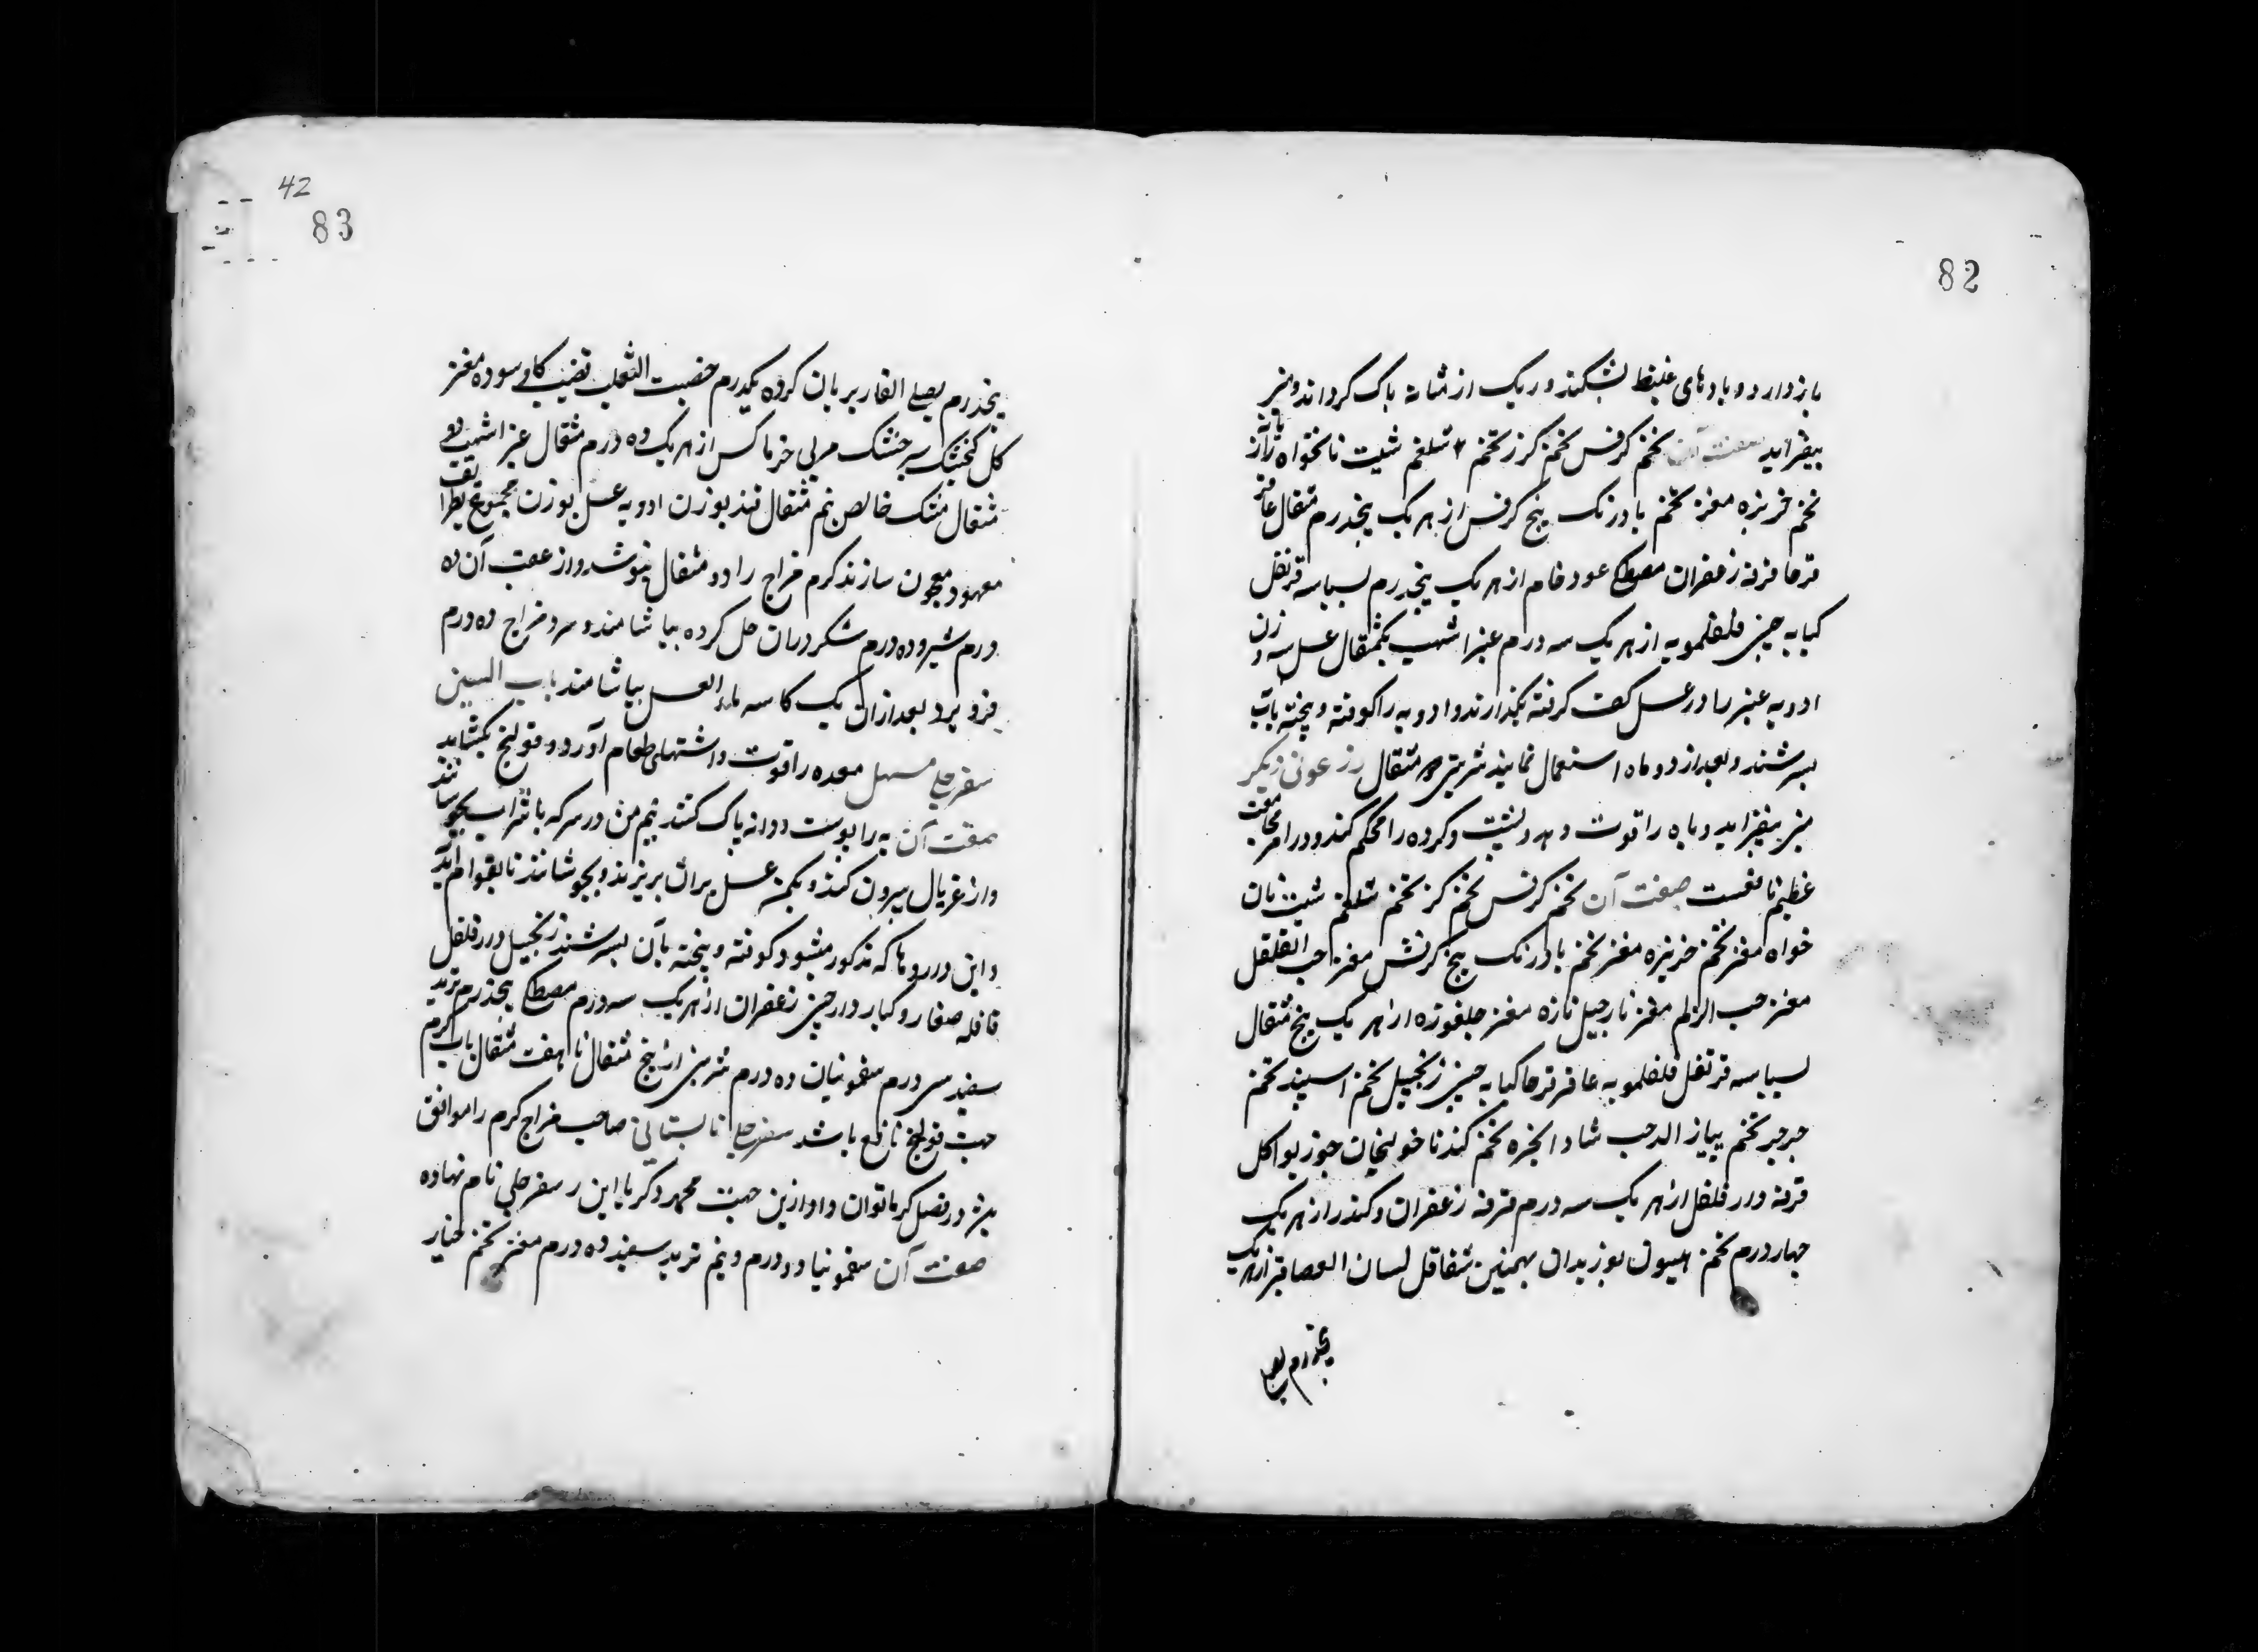 82
باز دارد و بادهای غلیظ بشکند و ریک از مثانه پاک گرداند و منی
بیفزاید صفت آن تخم کرفس تخم گزر تخم شلغم شبت نانخواه رازیانه
تخم خربزه مغز تخم بادرنک بیخ کرفس از هر یک پنجدرم مثقال عاقر
قرحا قرفه زعفران مصطکی عود خام از هر یک پنجدرم بسباسه قرنفل
کبابه چینی فلفلمویه از هر یک سه درم عنبر اشهب یکمثقال عسل سه وزن
ادویه عنبر را در عسل کف گرفته بگذارند و ادویه را کوفته و بیخته بآن
بسرشند و بعد از دو ماه استعمال نمایند شربتی مثقال زرعونی دیگر
منی بیفزاید و باه را قوت دهد و پشت و گرده را محکم کند و در امر مجامعت
عظیم نافعست صفت آن تخم کرفس تخم گزر تخم شلغم شبت نان
خواه مغز تخم خربزه مغز تخم بادرنک بیخ کرفس مغز حب القلقل
مغز حب الزلم مغز نارجیل تازه مغز جلغوزه از هر یک پنج مثقال
بسباسه قرنفل فلفلمویه عاقرقرحا کبابه چینی زنجبیل تخم اسپند تخم
جرجیر تخم پیاز الدحب شاد انجره تخم گندنا خولنجان جوز بوا کل
قرفه دار فلفل از هر یک سه درم قرفه زعفران و کندر از هر یک
چهار درم تخم هلیون بوزیدان بهمنین شقاقل لسان العصافیر از هر یک
پنجدرم بصل
42
83
پنجدرم بصل الفار بریان کرده یکدرم خصیت الثعلب قضیب گاو سوده مغز
کله گنجشک خشک مربی خرما از هر یک ده درم مثقال عنبر اشهب دو
مثقال مشک خالص نیم مثقال قند بوزن ادویه عسل بوزن مجموع بطریق
معهود معجون سازند گرم مزاج را دو مثقال بنوشد و از عقب آن ده
درم شیر و ده درم شکر در آن حل کرده بیاشامند و سرد مزاج ده درم
فرو برد بعد از آن یک کاسه ماء العسل بیاشامند باب السین
سفرجلی مسهل معده را قوت و اشتهای طعام آورد و قولنج بکشاید
صفت آن به را پوست و دانه پاک کنند نیم من در سرکه یا شراب بجوشانند
و از غربال بیرون کنند و یکمن عسل بر آن بریزند و بجوشانند تا بقوام آید
و این داروها که مذکور میشود کوفته و بیخته بآن بسرشند زنجبیل دار فلفل
قاقله صغار و کبار دار چینی زعفران از هر یک سه درم مصطکی پنجدرم تربد
سفید سی درم سقمونیان ده درم شربتی از پنج مثقال تا هفت مثقال بآب گرم
جهت قولنج نافع باشد سفرجلی تابستانی صاحب مزاج گرم را موافق
نیز در فصل گرما توان داد ازین جهت محمد زکریا این را سفرجلی نام نهاده
صفت آن سقمونیا دو درم و نیم تربد سفید ده درم مغز تخم خیار